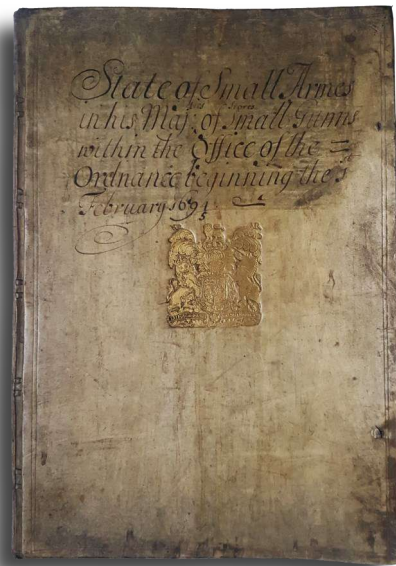 State of Small Armes
ties Stores
in his Maj: of small Gunns
within the Office of the =
Ordnance beginning the 1st
February 1691